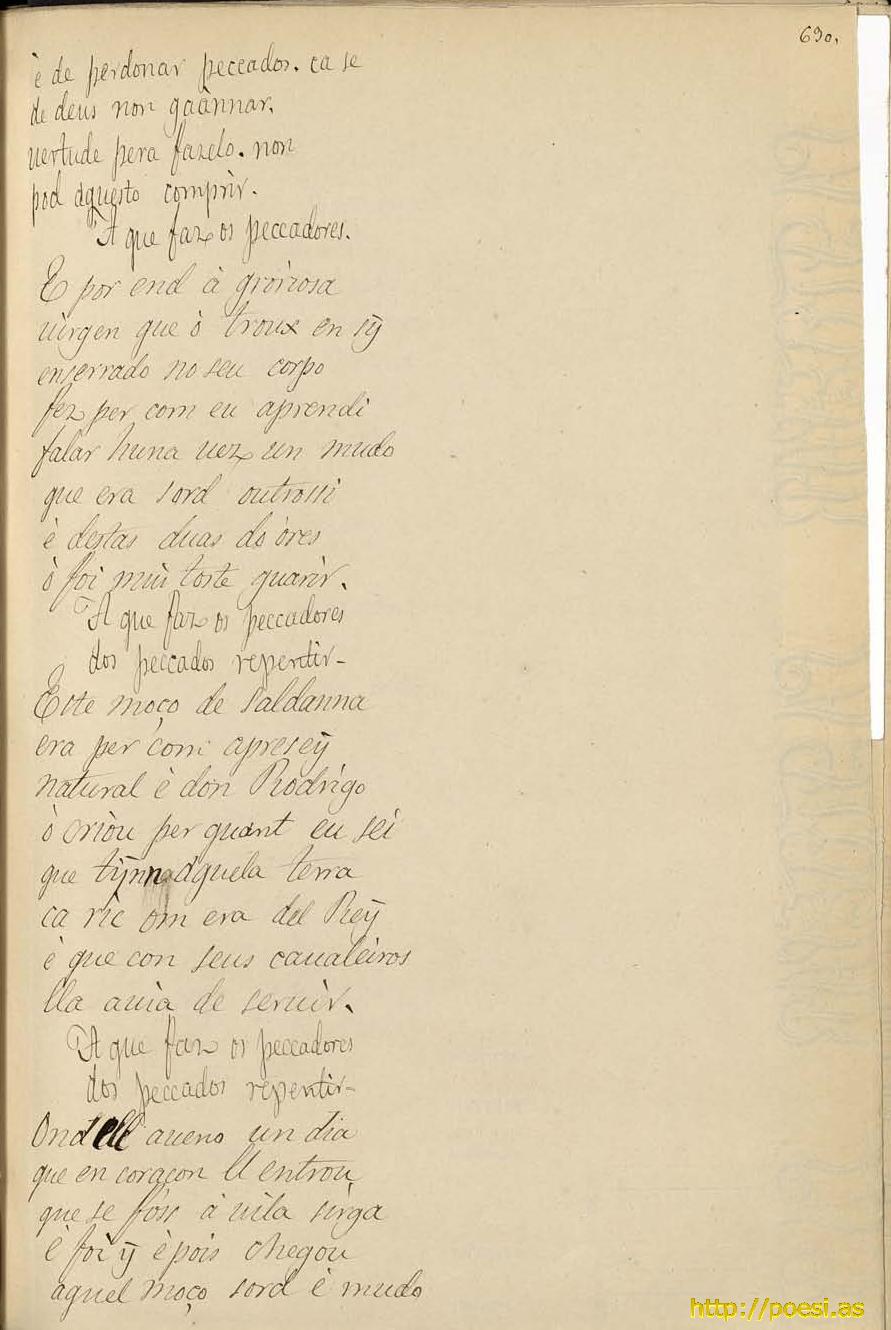 690.
è de perdonar peccados. ca se
de deus non gaannar.
uertude pera fazelo. non
pod aquesto comprir.
A que faz os peccadores.
E por end à groriosa
uirgen que ò troux en sÿ
enserrado no seu corpo
fez per com eu aprendi
falar huna uez un mudo
que era sord outrossi
è destas duas doores
ò foi mui toste guarir.
A que faz os peccadores
dos peccados repentir-
Este moço de Saldanna
era per com apresëy
natural è don Rodrigo
ò criou per quant eu sei
que tÿnn aquela terra
ca ric om era del Reÿ
è que con seus caualeiros
lla auia de seruir.
A que faz os peccadores
dos peccados repentir-
Ond ell aueno un dia
que en coraçon ll entrou
que se foss à uila sirga
è foi ÿ è pois chegou
aquel moço sord è mudo
http://poesi.as